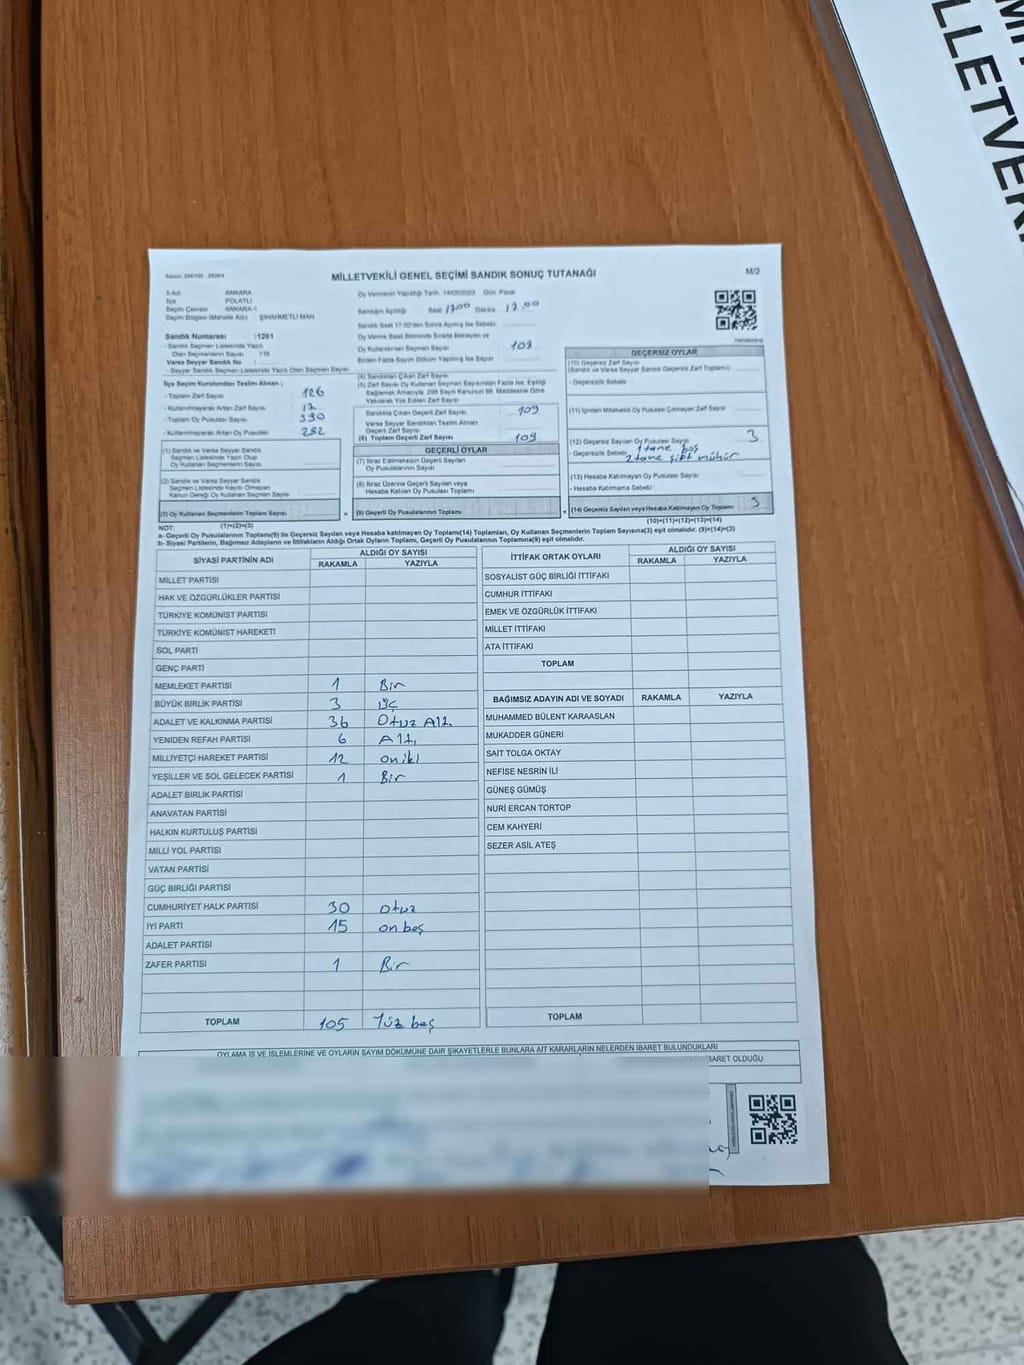 MİLLETVEKİLİ GENEL SEÇİMİ SANDIK SONUÇ TUTANAĞI
M/2
İl Adı ANKARA
İlçe POLATLI
Seçim Çevresi ANKARA-1
Seçim Bölgesi (Mahalle Adı) : ŞIHAHMETLİ MAH
Sandık Numarası :1261
- Sandık Seçmen Listesinde Yazılı
Olan Seçmenlerin Sayısı 116
Varsa Seyyar Sandık No :
- Seyyar Seçmen Listesinde Yazılı Olan Seçmen Sayısı
İlçe Seçim Kurulundan Teslim Alınan ;
- Toplam Zarf Sayısı 126
- Kullanılmayarak Artan Zarf Sayısı 17
- Toplam Oy Pusulası Sayısı 330
- Kullanılmayarak Artan Oy Pusulası 282
(1) Sandık ve Varsa Seyyar Sandık
Seçmen Listesinde Yazılı Olup
Oy Kullanan Seçmenlerin Sayısı
(2) Sandık ve Varsa Seyyar Sandık
Seçmen Listesinde Kaydı Olmayan
Kanun Gereği Oy Kullanan Seçmen Sayısı
(3) Oy Kullanan Seçmenlerin Toplam Sayısı
(1)+(2)=(3)
Oy Vermenin Yapıldığı Tarih 14/05/2023 Gün Pazar
Sandığın Açıldığı Saat 17:00 Dakika 17.00
Sandık Saat 17:00'den Sonra Açılmış İse Sebebi
Oy Verme Bitiminde Sırada Bekleyen ve
Oy Kullandırılan Seçmen Sayısı 109
Birden Fazla Sayım Döküm Yapılmış İse Sayısı
(4) Sandıktan Çıkan Zarf Sayısı
Sandıkta Çıkan Geçerli Zarf Sayısı 109
Varsa Seyyar Sandıktan Teslim Alınan
Geçerli Zarf Sayısı
(6) Toplam Geçerli Zarf Sayısı 109
GEÇERLİ OYLAR
(7) İtiraz Edilmeksizin Geçerli Sayılan
Oy Pusulalarının Sayısı
(8) İtiraz Üzerine Geçerli Sayılan veya
Hesaba Katılan Oy Pusulası Toplamı
(9) Geçerli Oy Pusulalarının Toplamı
GEÇERSİZ OYLAR
(10) Geçersiz Zarf Sayısı
(Sandık ve Varsa Seyyar Sandık Geçersiz Zarf Toplamı)
- Geçersizlik Sebebi
(11) İçinden Milletvekili Oy Pusulası Çıkmayan Zarf Sayısı
(12) Geçersiz Sayılan Oy Pusulası Sayısı 3
- Geçersizlik Sebebi 1 tane boş
2 tane çift mühür
(13) Hesaba Katılmayan Oy Pusulası Sayısı
- Hesaba Katılmama Sebebi
(14) Geçersiz Sayılan veya Hesaba Katılmayan Oy Toplamı 3
(10)+(11)+(12)+(13)=(14)
NOT:
a- Geçerli Oy Pusulalarının Toplamı(9) ile Geçersiz Sayılan veya Hesaba katılmayan Oy Toplamı(14) Toplamları, Oy Kullanan Seçmenlerin Toplam Sayısına(3) eşit olmalıdır. (9)+(14)=(3)
b- Siyasi Partilerin, Bağımsız Adayların ve İttifakların Aldığı Ortak Oyların Toplamı, Geçerli Oy Pusulalarının Toplamına(9) eşit olmalıdır.
SİYASİ PARTİNİN ADI ALDIĞI OY SAYISI
RAKAMLA YAZIYLA
MİLLET PARTİSİ
HAK VE ÖZGÜRLÜKLER PARTİSİ
TÜRKİYE KOMÜNİST PARTİSİ
TÜRKİYE KOMÜNİST HAREKETİ
SOL PARTİ
GENÇ PARTİ
MEMLEKET PARTİSİ 1 Bir
BÜYÜK BİRLİK PARTİSİ 3 üç
ADALET VE KALKINMA PARTİSİ 36 Otuz Altı
YENİDEN REFAH PARTİSİ 6 Altı
MİLLİYETÇİ HAREKET PARTİSİ 12 oniki
YEŞİLLER VE SOL GELECEK PARTİSİ 1 Bir
ADALET BİRLİK PARTİSİ
ANAVATAN PARTİSİ
HALKIN KURTULUŞ PARTİSİ
MİLLİ YOL PARTİSİ
VATAN PARTİSİ
GÜÇ BİRLİĞİ PARTİSİ
CUMHURİYET HALK PARTİSİ 30 otuz
İYİ PARTİ 15 on beş
ADALET PARTİSİ
ZAFER PARTİSİ 1 Bir
TOPLAM 105 Yüz beş
İTTİFAK ORTAK OYLARI ALDIĞI OY SAYISI
RAKAMLA YAZIYLA
SOSYALİST GÜÇ BİRLİĞİ İTTİFAKI
CUMHUR İTTİFAKI
EMEK VE ÖZGÜRLÜK İTTİFAKI
MİLLET İTTİFAKI
ATA İTTİFAKI
TOPLAM
BAĞIMSIZ ADAYIN ADI VE SOYADI RAKAMLA YAZIYLA
MUHAMMED BÜLENT KARAASLAN
MUKADDER GÜNERİ
SAİT TOLGA OKTAY
NEFİSE NESRİN İLİ
GÜNEŞ GÜMÜŞ
NURİ ERCAN TORTOP
CEM KAHYERİ
SEZER ASİL ATEŞ
TOPLAM
OYLAMA İŞ VE İŞLEMLERİNE VE OYLARIN SAYIM DÖKÜMÜNE DAİR ŞİKAYETLERLE BUNLARA AİT KARARLARIN NELERDEN İBARET BULUNDUKLARI
BARET OLDUĞU
LLETVEKİ